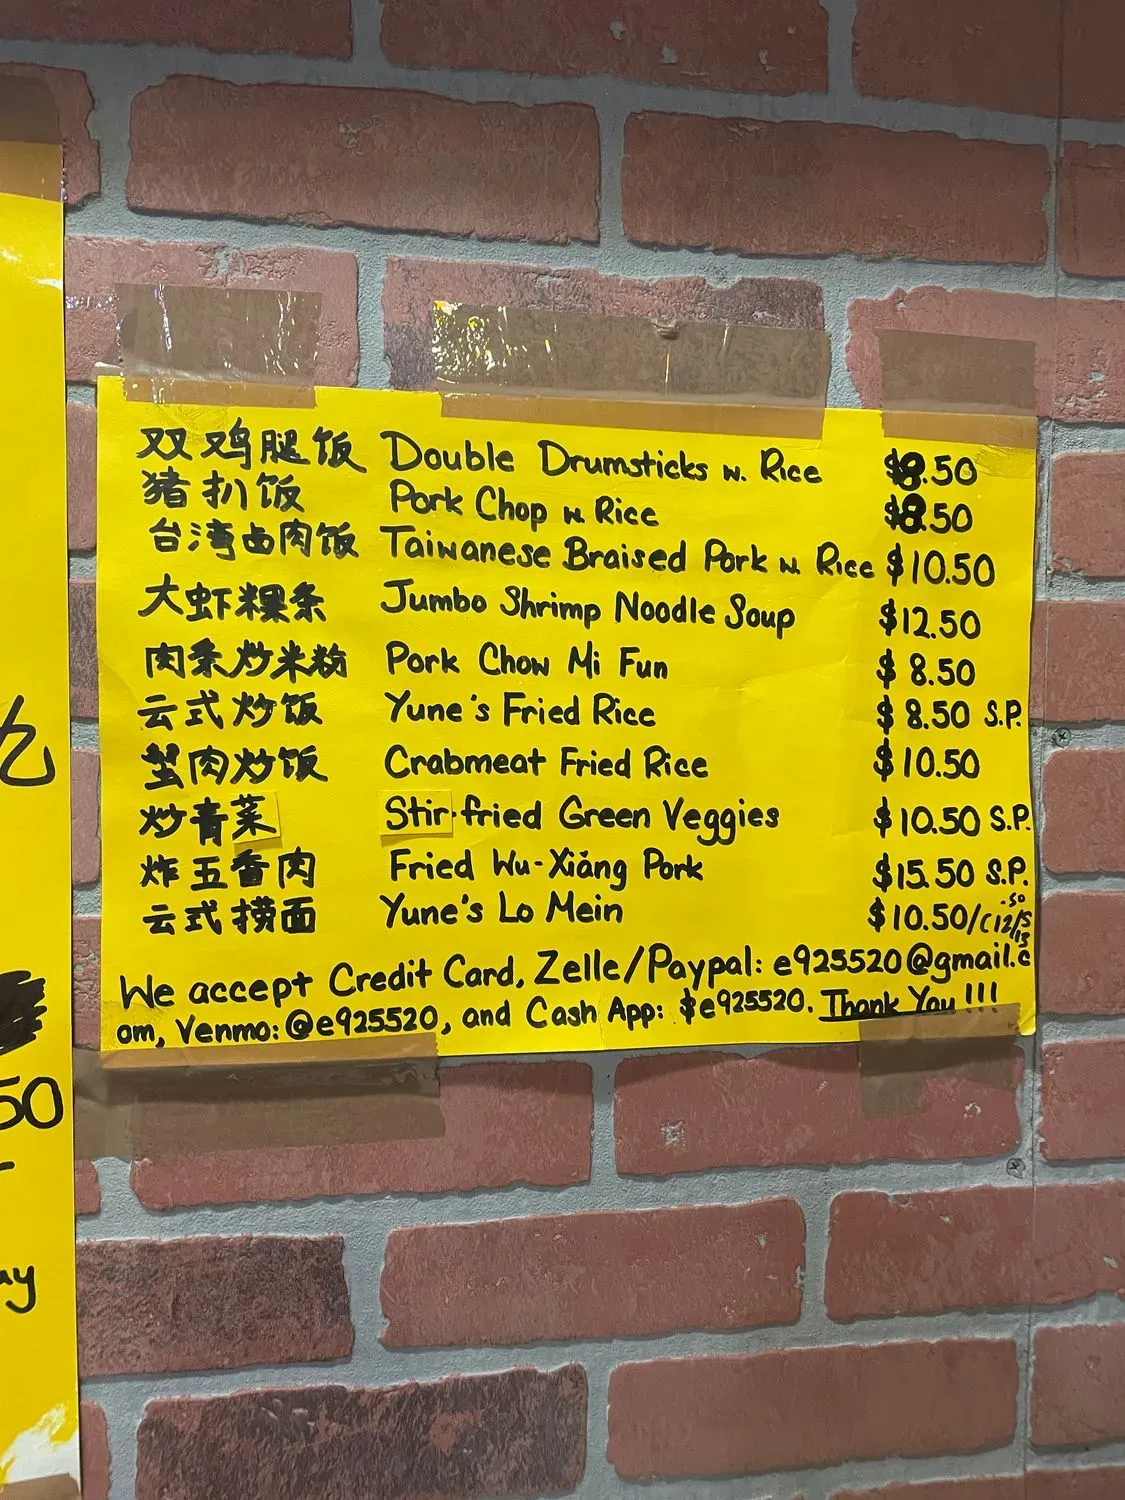 双鸡腿饭 Double Drumsticks w. Rice $8.50
猪扒饭 Pork Chop w. Rice $8.50
台湾卤肉饭 Taiwanese Braised Pork w. Rice $10.50
大虾粿条 Jumbo Shrimp Noodle Soup $12.50
肉条炒米粉 Pork Chow Mi Fun $8.50
云式炒饭 Yune's Fried Rice $8.50 S.P.
蟹肉炒饭 Crabmeat Fried Rice $10.50
炒青菜 Stir-fried Green Veggies $10.50 S.P.
炸五香肉 Fried Wu-Xiāng Pork $15.50 S.P.
云式捞面 Yune's Lo Mein $10.50/
We accept Credit Card, Zelle/Paypal: e925520@gmail.c
om, Venmo: @e925520, and Cash App: $e925520. Thank You!!!
50
ay